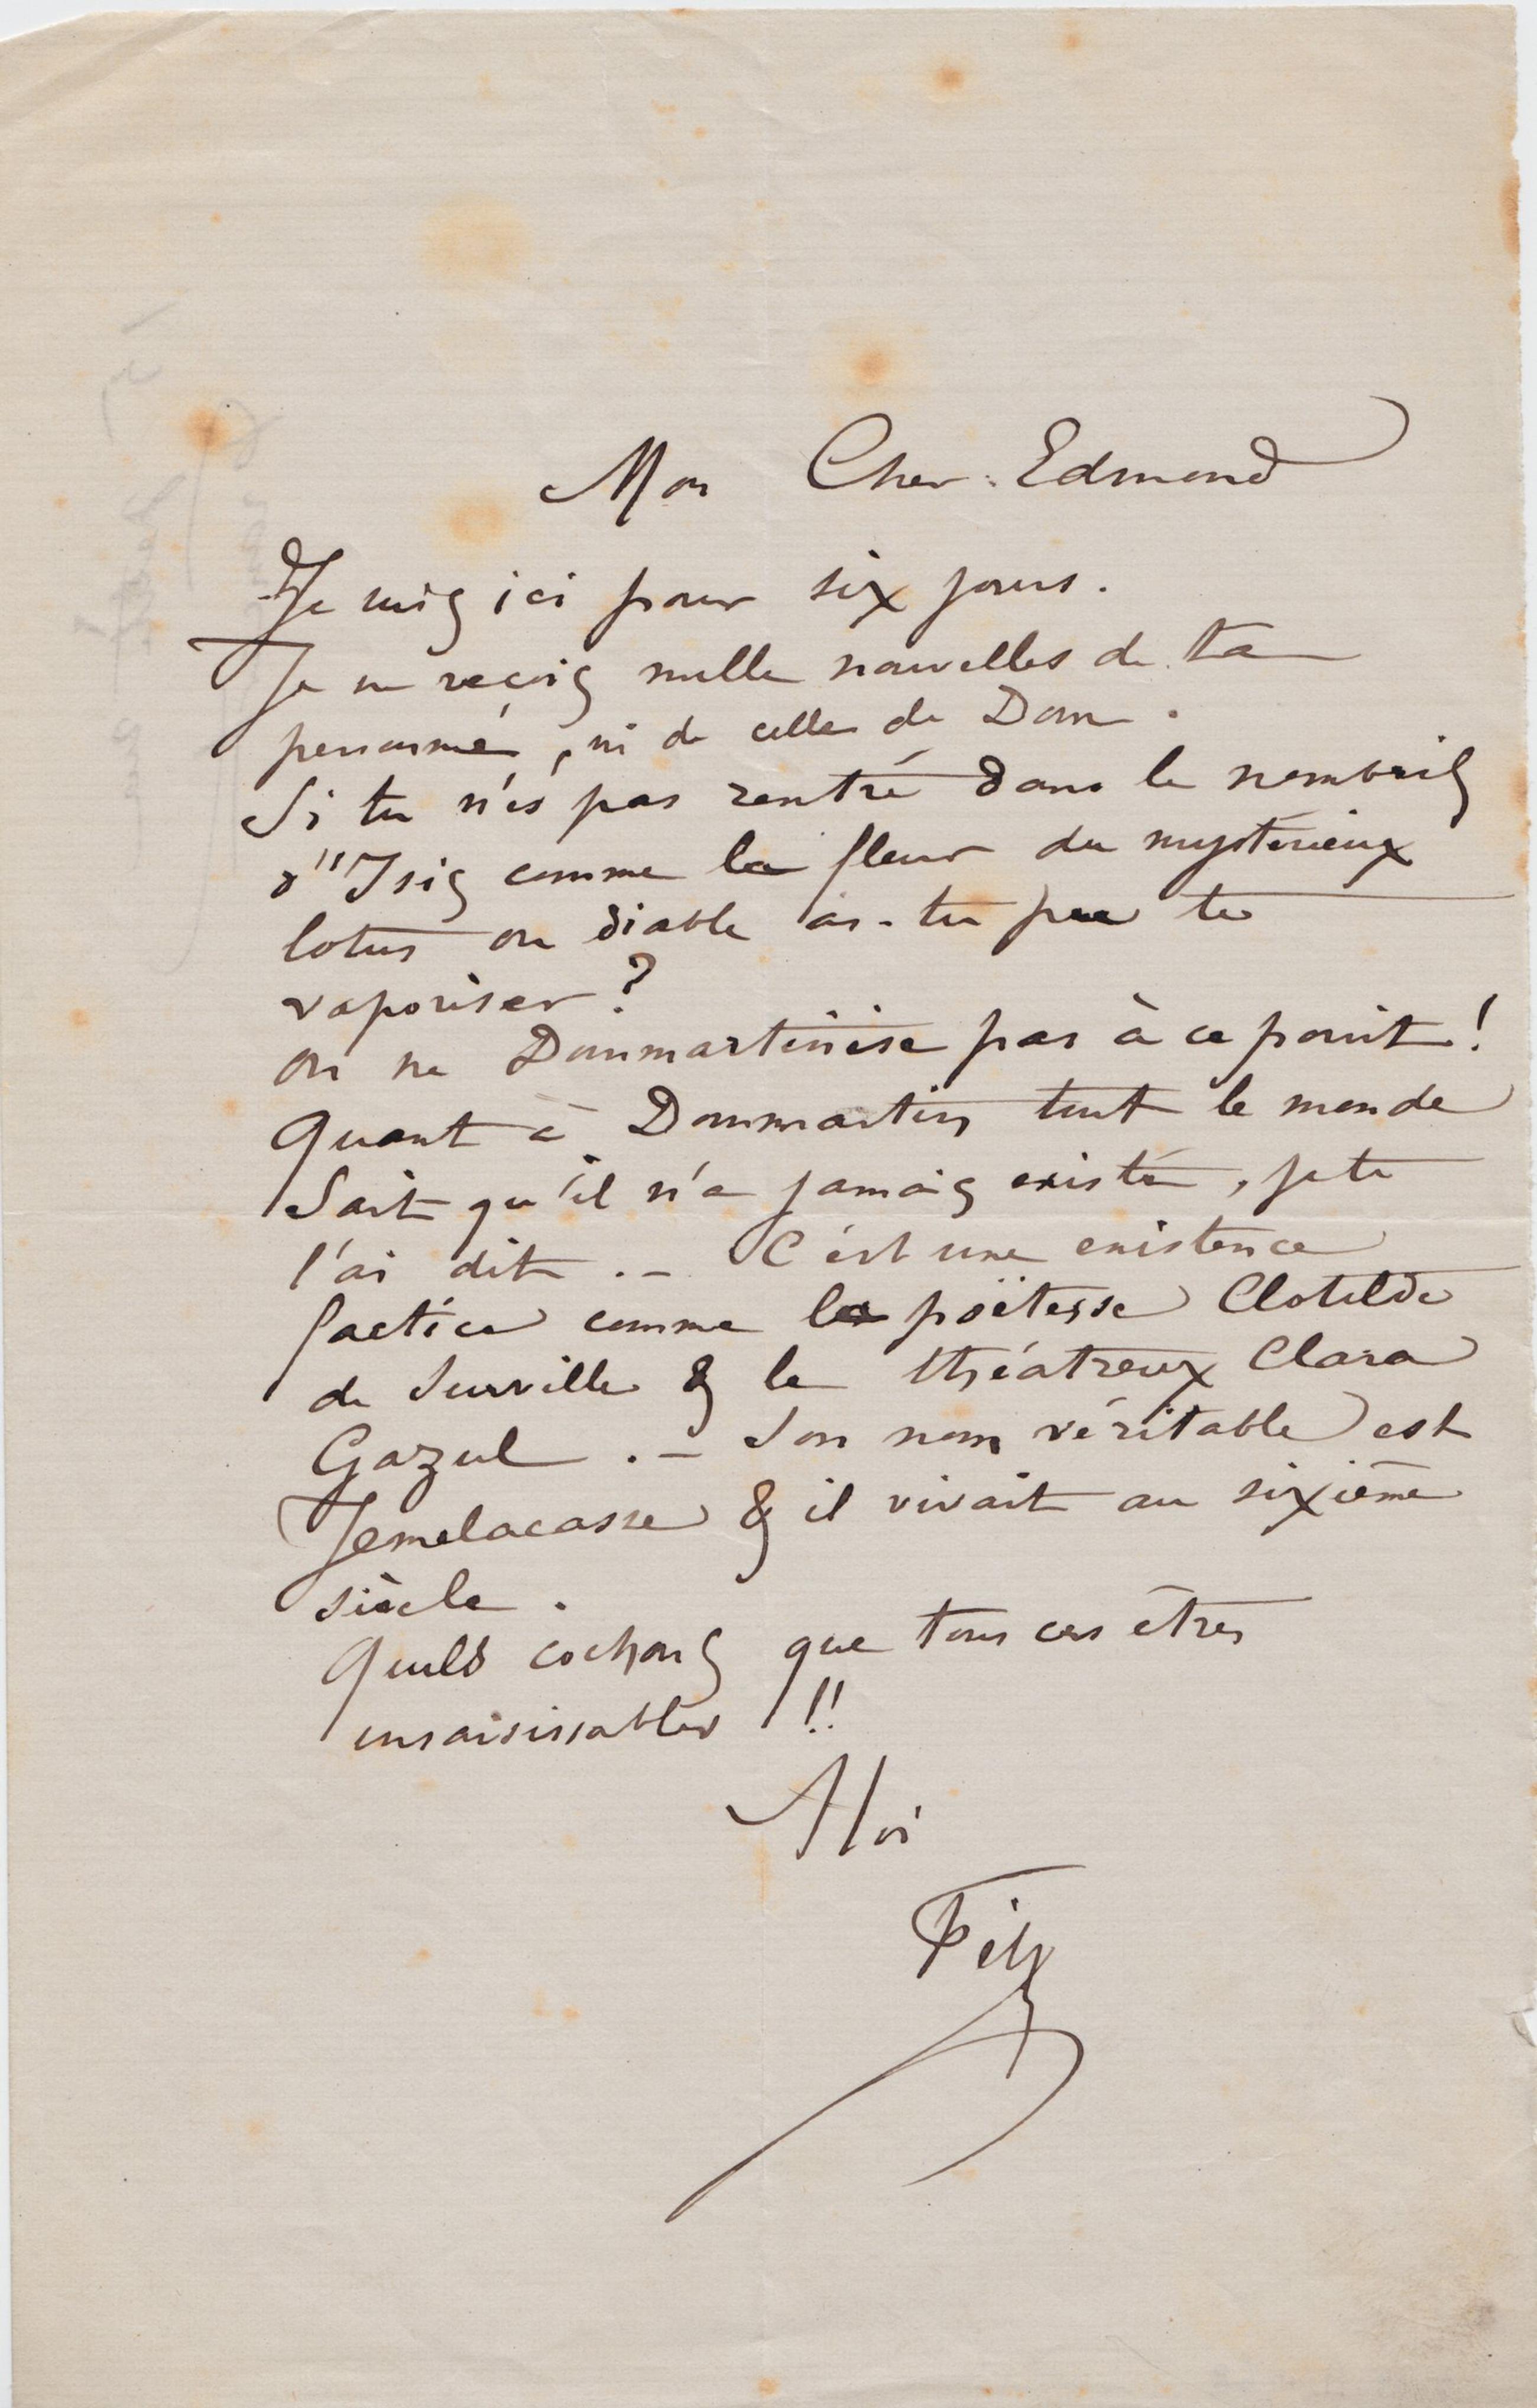 Mon Cher Edmond
Je suis ici pour six jours.
Je ne reçois nulle nouvelles de ta
personne, ni de celle de Dom.
Si tu n'és pas rentré dans le nombril
d''Isis comme la fleur du mystérieux
lotus ou diable as-tu pu te
vaporiser ?
On ne Dommartinise pas à ce point !
Quant à Dommartin tout le monde
Sait qu'il n'a jamais existé, je te
l'ai dit. — C'est une existence
factice comme la poëtesse Clotilde
de Surville & le théatreux Clara
Gazul. — Son nom véritable est
Jemelacasse & il vivait au sixième
siècle.
Quels cochons que tous ces êtres
insaisissables !!
A toi
Fély